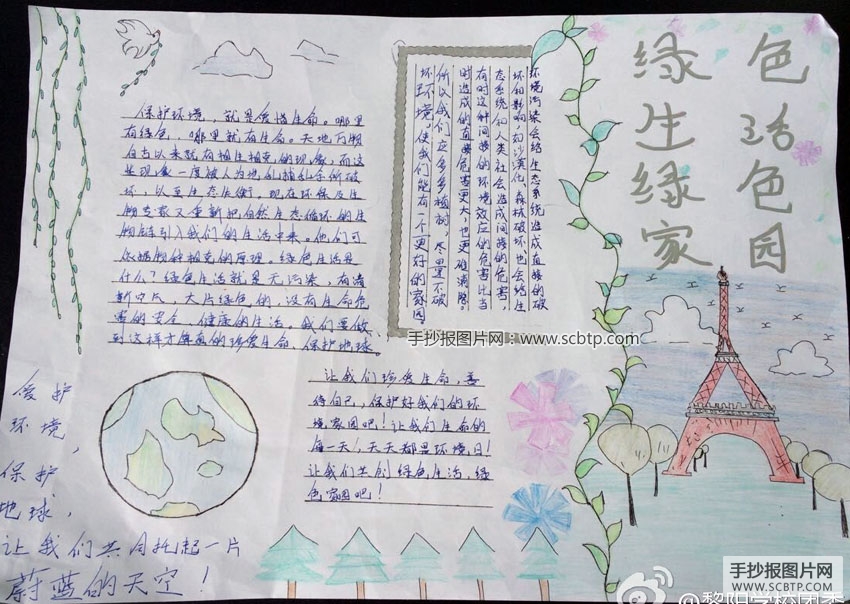 绿色
生活
绿色
家园
保护环境，就是爱惜生命。哪里
有绿色，哪里就有生命。天地万物
自古以来就有相生相克的现象，而这
些现象一度被人为地乱捕乱杀所破
坏，以至生态失衡，现在环保及生
物专家又重新把自然生态循环的生
物链引入我们的生活中来。他们可
依据物种相克的原理。绿色生活是
什么？绿色生活就是无污染，有清
新空气，大片绿色的，没有生命危
害的安全、健康的生活。我们要做
到这样才算真的珍爱生命，保护地球。
环境污染会给生态系统造成直接的破
坏和影响，如沙漠化、森林破坏也会给生
态系统和人类社会造成间接的危害，
有时这种间接的环境效应的危害比当
时造成的直接危害更大，也更难消除。
所以我们应多多植树，尽量不破
坏环境，使我们能有一个更好的家园
让我们珍爱生命，善
待自己，保护好我们的环
境家园吧！让我们生命的
每一天，天天都是环境日！
让我们共创绿色生活，绿
色家园吧！
爱护
环境，
保护
地球，
让我们共同托起一片
蔚蓝的天空！
手抄报图片网：www.scbtp.com
手抄报图片网
WWW.SCBTP.COM